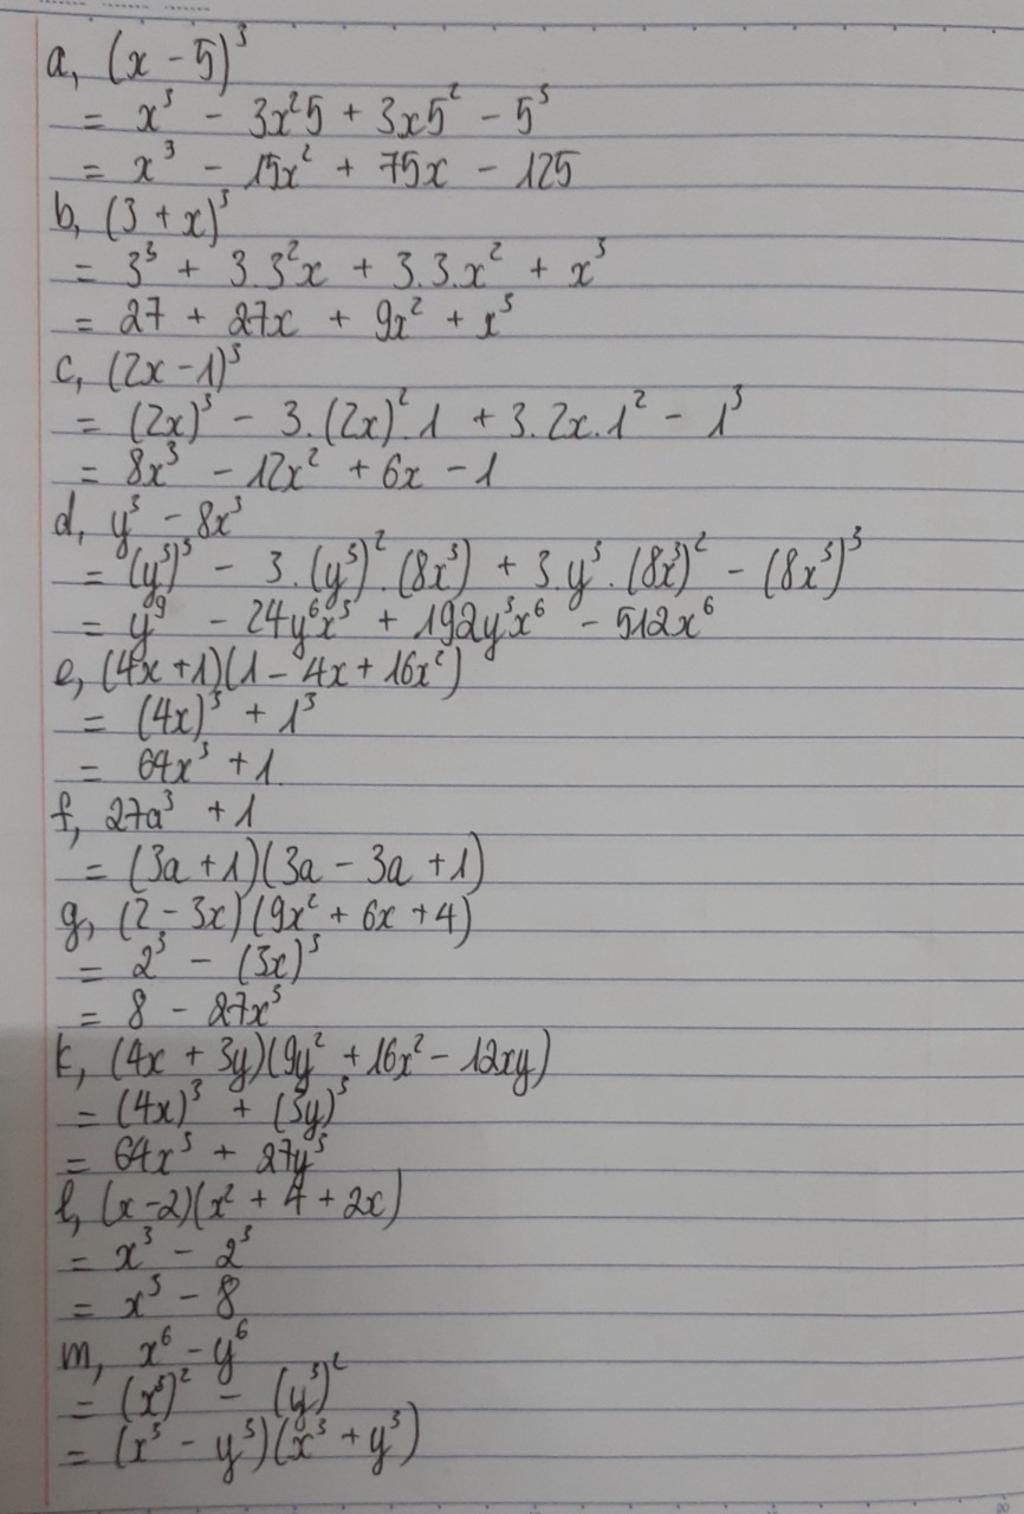 a, (x - 5)³
= x³ - 3x²5 + 3x5² - 5³
= x³ - 15x² + 75x - 125
b, (3 + x)³
= 3³ + 3.3²x + 3.3.x² + x³
= 27 + 27x + 9x² + x³
c, (2x - 1)³
= (2x)³ - 3.(2x)².1 + 3.2x.1² - 1³
= 8x³ - 12x² + 6x - 1
d, y³ - 8x³
= (y³)³ - 3.(y³)².(8x³) + 3.y³.(8x³)² - (8x³)³
= y⁹ - 24y⁶x³ + 192y³x⁶ - 512x⁶
e, (4x + 1)(1 - 4x + 16x²)
= (4x)³ + 1³
= 64x³ + 1
f, 27a³ + 1
= (3a + 1)(3a - 3a + 1)
g, (2 - 3x)(9x² + 6x + 4)
= 2³ - (3x)³
= 8 - 27x³
k, (4x + 3y)(9y² + 16x² - 12xy)
= (4x)³ + (3y)³
= 64x³ + 27y³
l, (x - 2)(x² + 4 + 2x)
= x³ - 2³
= x³ - 8
m, x⁶ - y⁶
= (x³)² - (y³)²
= (x³ - y³)(x³ + y³)
20